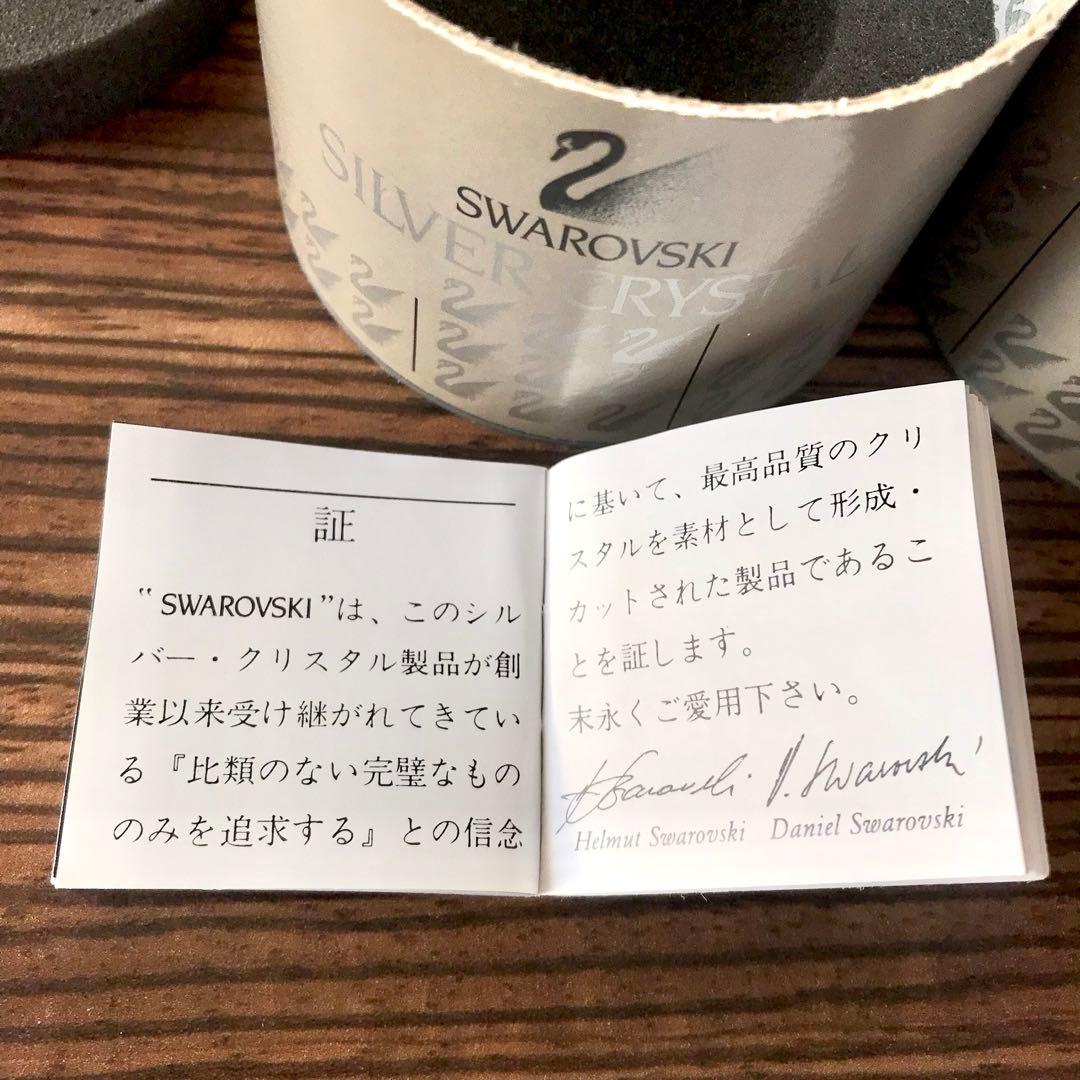 SWAROVSKI
SILVER CRYSTAL
証
“SWAROVSKI”は、このシル
バー・クリスタル製品が創
業以来受け継がれてきてい
る『比類のない完璧なもの
のみを追求する』との信念
に基いて、最高品質のクリ
スタルを素材として形成・
カットされた製品であるこ
とを証します。
末永くご愛用下さい。
D. Swarovski
Helmut Swarovski Daniel Swarovski